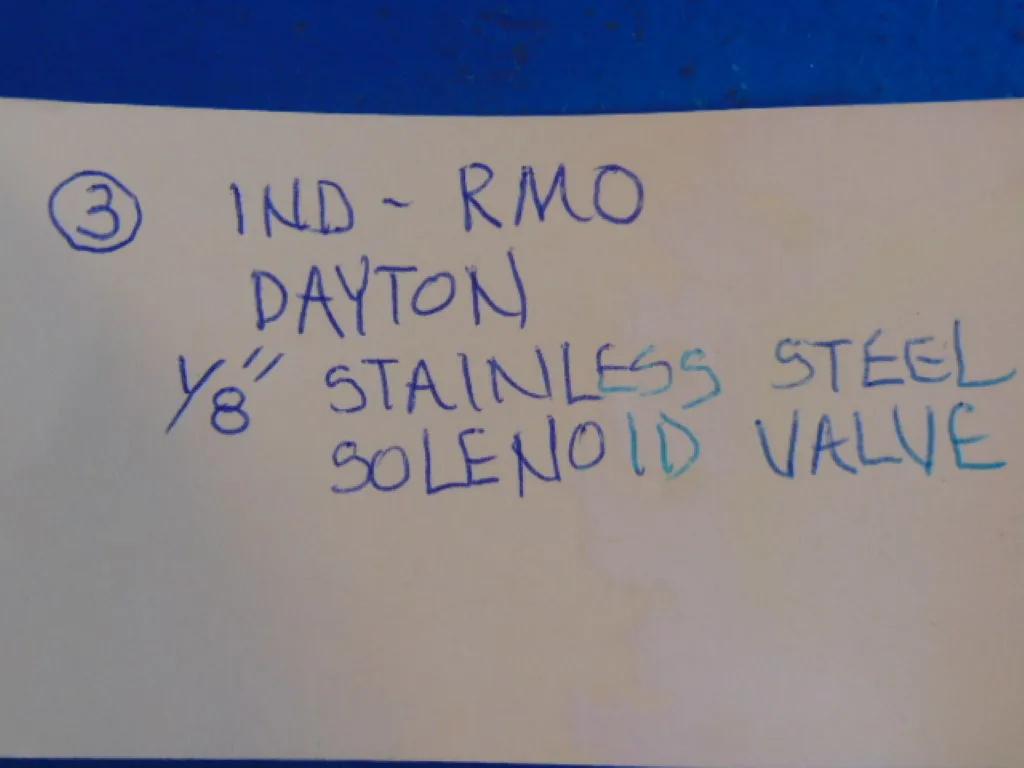 ③ IND - RMO
DAYTON
1/8" STAINLESS STEEL
SOLENOID VALVE